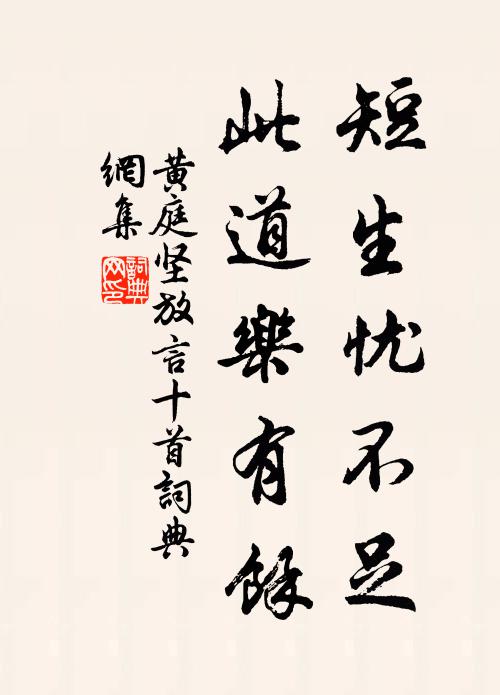 短生忧不足
此道樂有餘
黄庭坚放言十首詞典
網集
詞典网印